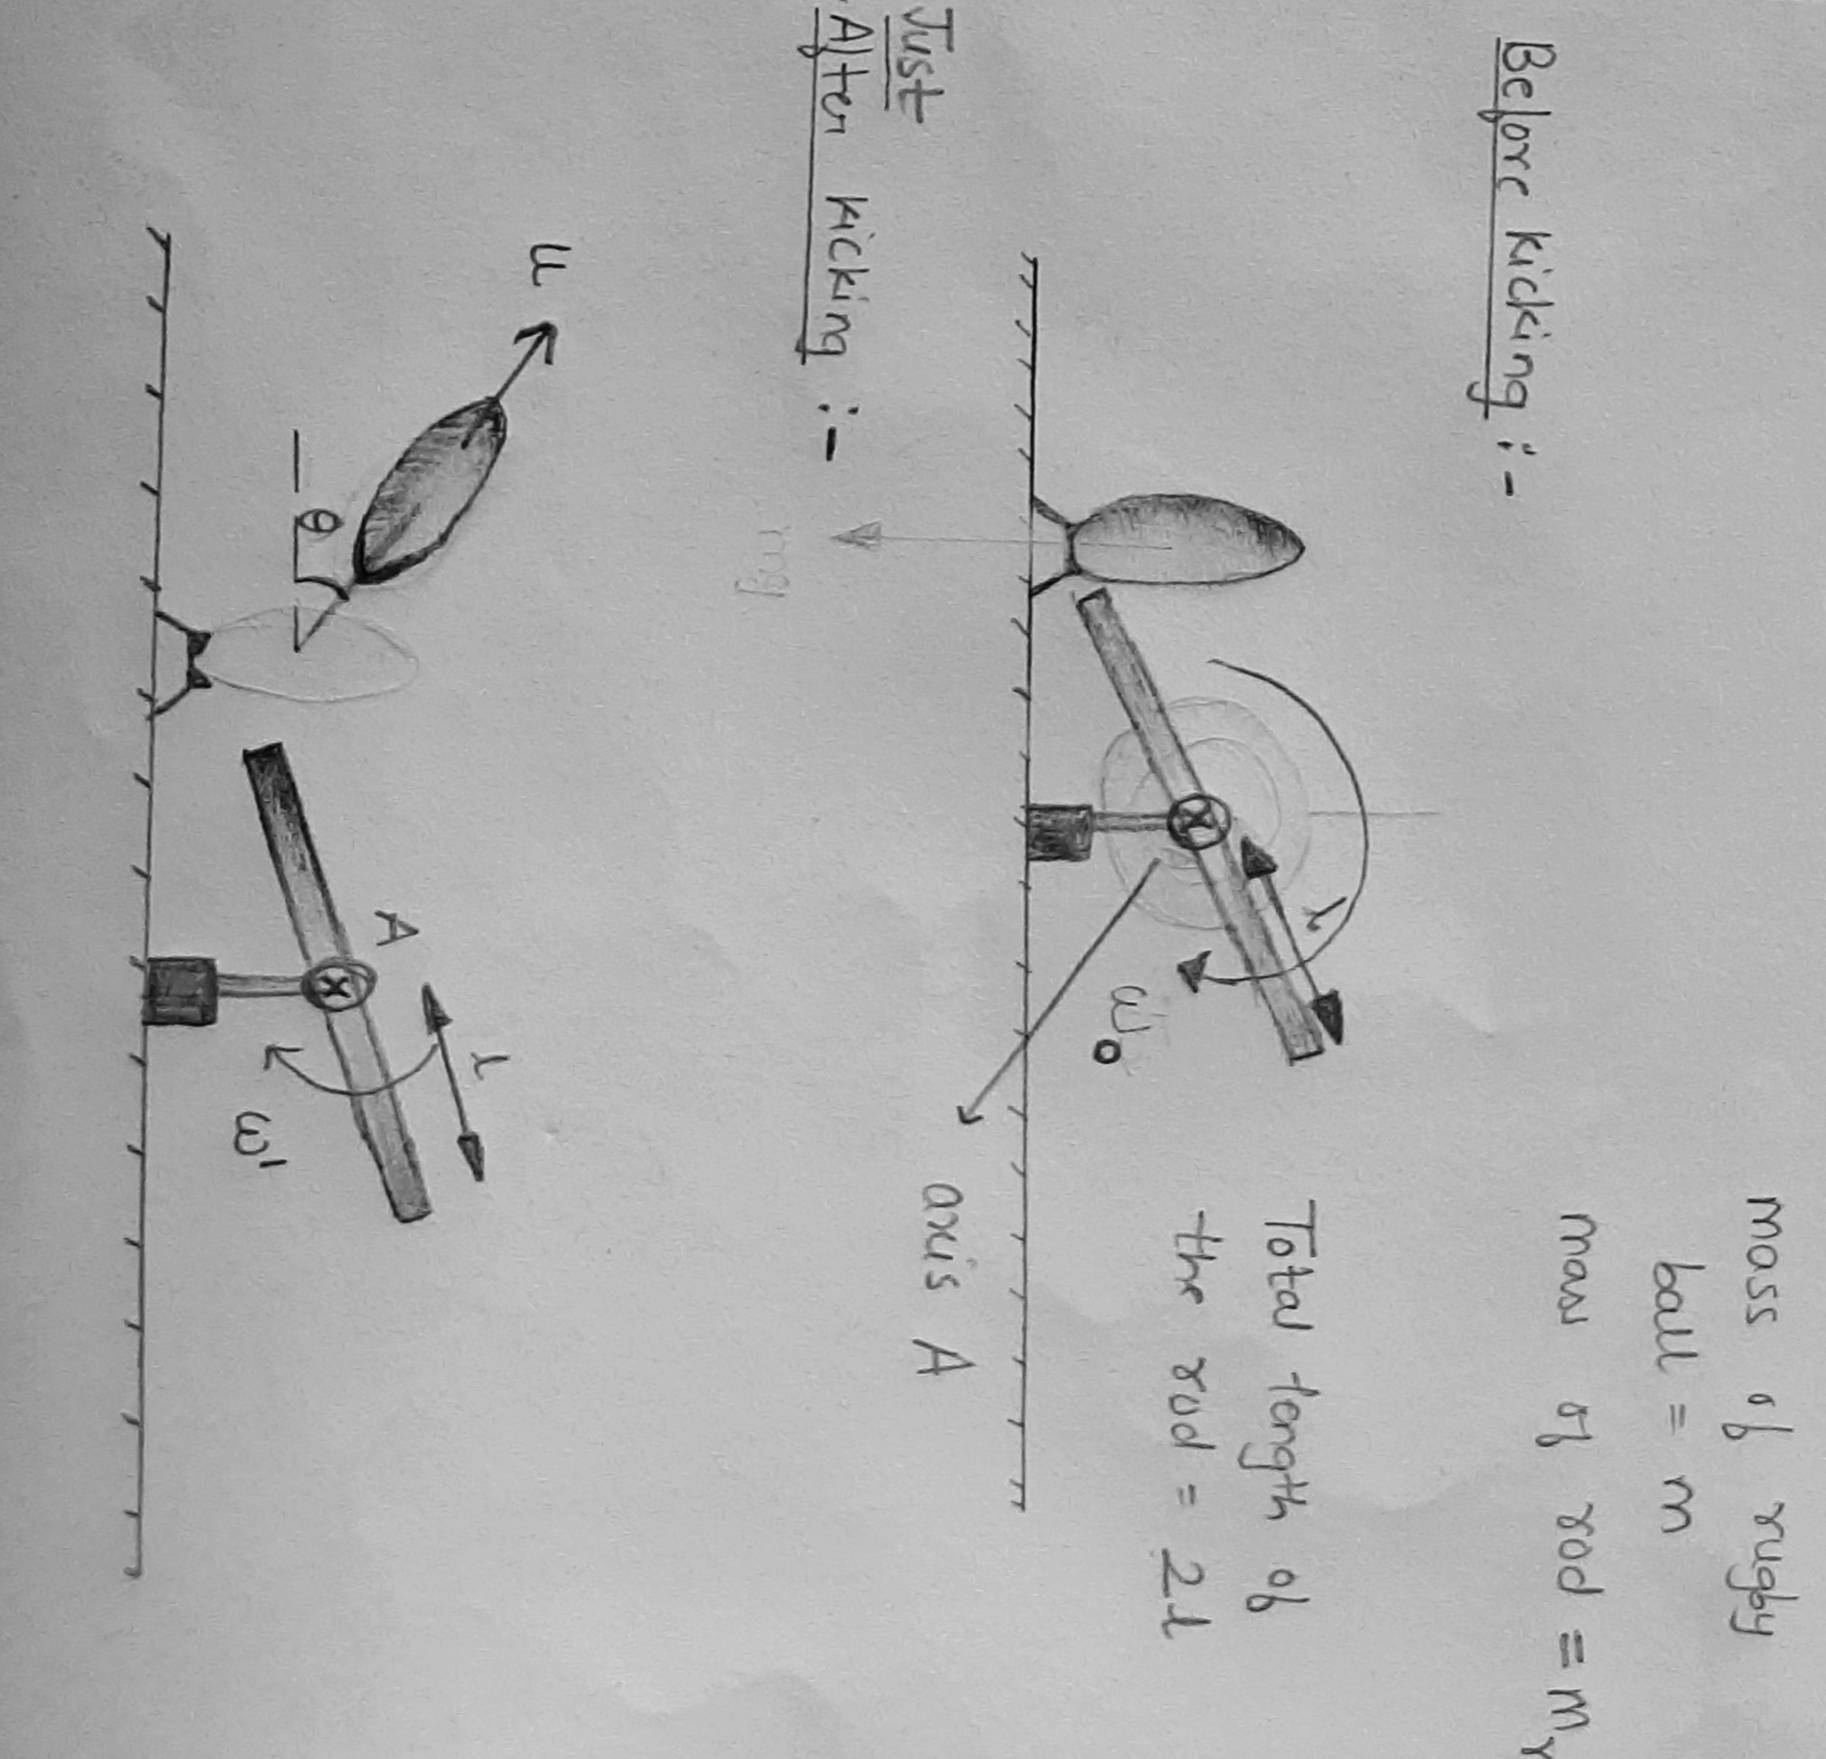 mass of rugby
ball = m
mass of rod = mr
Before kicking :-
l
Total length of
the rod = 2l
ω₀
axis A
Just
After kicking :-
mg
u
l
A
θ
ω'